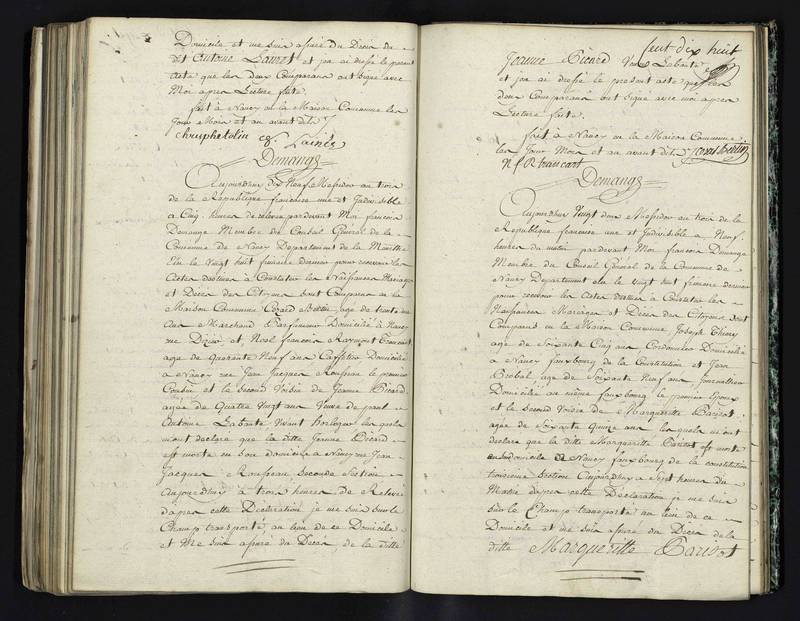 Domicile et me suis assuré du Décès du
dit Antoine Lauret et jai ai dressé le present
acte que les deux Comparans ont signé avec
Moi apres Lecture faite.
fait à Nancy en la Maison Commune les
Jour Mois et an avant dits
Demange
Aujourdhuy dix Neuf Messidor an trois
de la République francaise une et Indivisible
a Cinq heures de relevée pardevant Moi francois
Demange Membre du Conseil Général de la
Commune de Nancy Departement de la Meurthe
Elu le Vingt huit frimaire dernier pour recevoir les
Actes destinés à Constater les Naissances Mariages
et Décès des Citoyens Sont Comparus en la
Maison Commune Cezard Bertin, age de trente
ans Marchand Parfumeur Domicilié à Nancy
rue et Noel francois Raymont Trancart
age de Quarante Neuf ans Caffetier Domicilié
a Nancy rue Jean Jacques Rousseau le premier
Cousin et le second Voisin de Jeanne Picard
agée de Quatre Vingt ans Veuve de
Antoine Labante Vivant horloger les quels
m'ont déclaré que la ditte Jeanne Picard
est morte en Son domicile a Nancy rue Jean
Jacques Rousseau Seconde Section
Aujourdhuy à trois heures de Relevée
dapres cette Déclaration je me suis sur le
Champ transporté au lieu de ce Domicile
et Me suis assuré du Décès de la ditte
Cent dix huit
Jeanne Picard Veuve Labante
et jai ai dressé le présent acte que les
deux Comparans ont signé avec moi apres
Lecture faite.
fait à Nancy en la Maison Commune
les Jour Mois et an avant dits Cezard Bertin
N f R trancart
Demange
Aujourdhuy Vingt deux Messidor an trois de la
République francaise une et Indivisible a Neuf
heures du matin pardevant Moi francois Demange
Membre du Conseil Général de la Commune de
Nancy Departement elu le Vingt huit frimaire dernier
pour recevoir les Actes destinés à Constater les
Naissances Mariages et Décès des Citoyens Sont
Comparus en la Maison Commune Joseph Thiery
age de Soixante Cinq ans Cordonnier Domicilié
a Nancy fauxbourg de la Constitution et Jean
age de Soixante Neuf ans Journallier
Domicilié au même fauxbourg le premier Epoux
et le Second Voisin de Marguerite Parisot
agée de Soixante Quinze ans les quels m'ont
déclaré que la ditte Marguerite Parisot est morte
en son domicile a Nancy fauxbourg de la constitution
troisieme Section Aujourdhuy a Sept heures du
Matin dapres cette Déclaration je me suis
Sur le Champ transporté au lieu de ce
Domicile et me suis assuré du Décès de la
ditte Marguerite Parisot